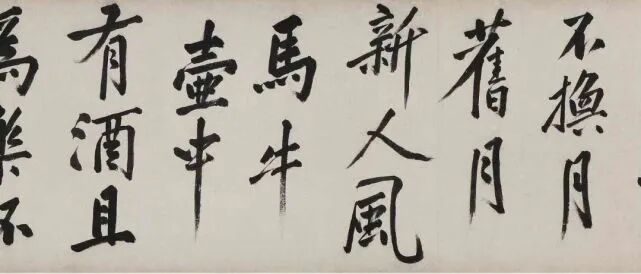 不換月
舊月
新人風
馬牛
壺中
有酒且
為樂